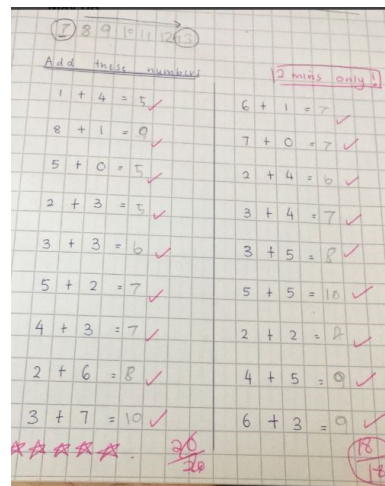 7 8 9 10 11 12 13
Add these numbers
2 mins only!
1 + 4 = 5
8 + 1 = 9
5 + 0 = 5
2 + 3 = 5
3 + 3 = 6
5 + 2 = 7
4 + 3 = 7
2 + 6 = 8
3 + 7 = 10
20
6 + 1 = 7
7 + 0 = 7
2 + 4 = 6
3 + 4 = 7
3 + 5 = 8
5 + 5 = 10
2 + 2 =
4 + 5 = 9
6 + 3 = 9
18